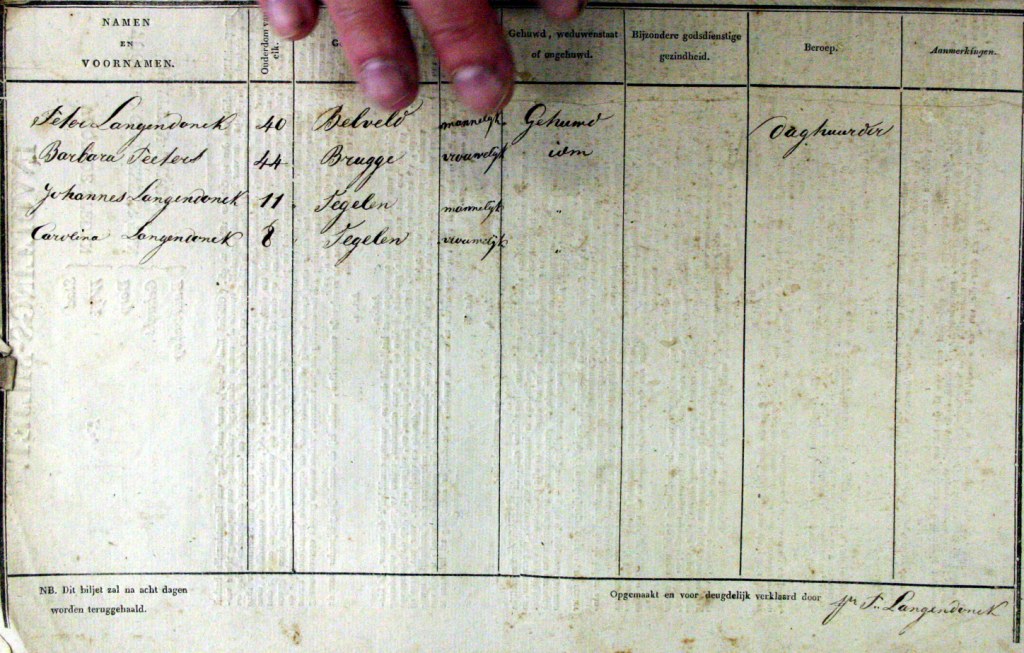 NAMEN
EN
VOORNAMEN.
Ouderdom
elk.
Gehuwd, weduwenstaat
of ongehuwd.
Bijzondere godsdienstige
gezindheid.
Beroep.
Aanmerkingen.
Peter Langendonck 40 Belveld mannelijk Gehuwd daghuurder
Barbara Peeters 44 Brugge vrouwelijk idm
Johannes Langendonck 11 Tegelen mannelijk "
Carolina Langendonck 8 Tegelen vrouwelijk "
NB. Dit biljet zal na acht dagen
worden teruggehaald.
Opgemaakt en voor deugdelijk verklaard door Langendonck